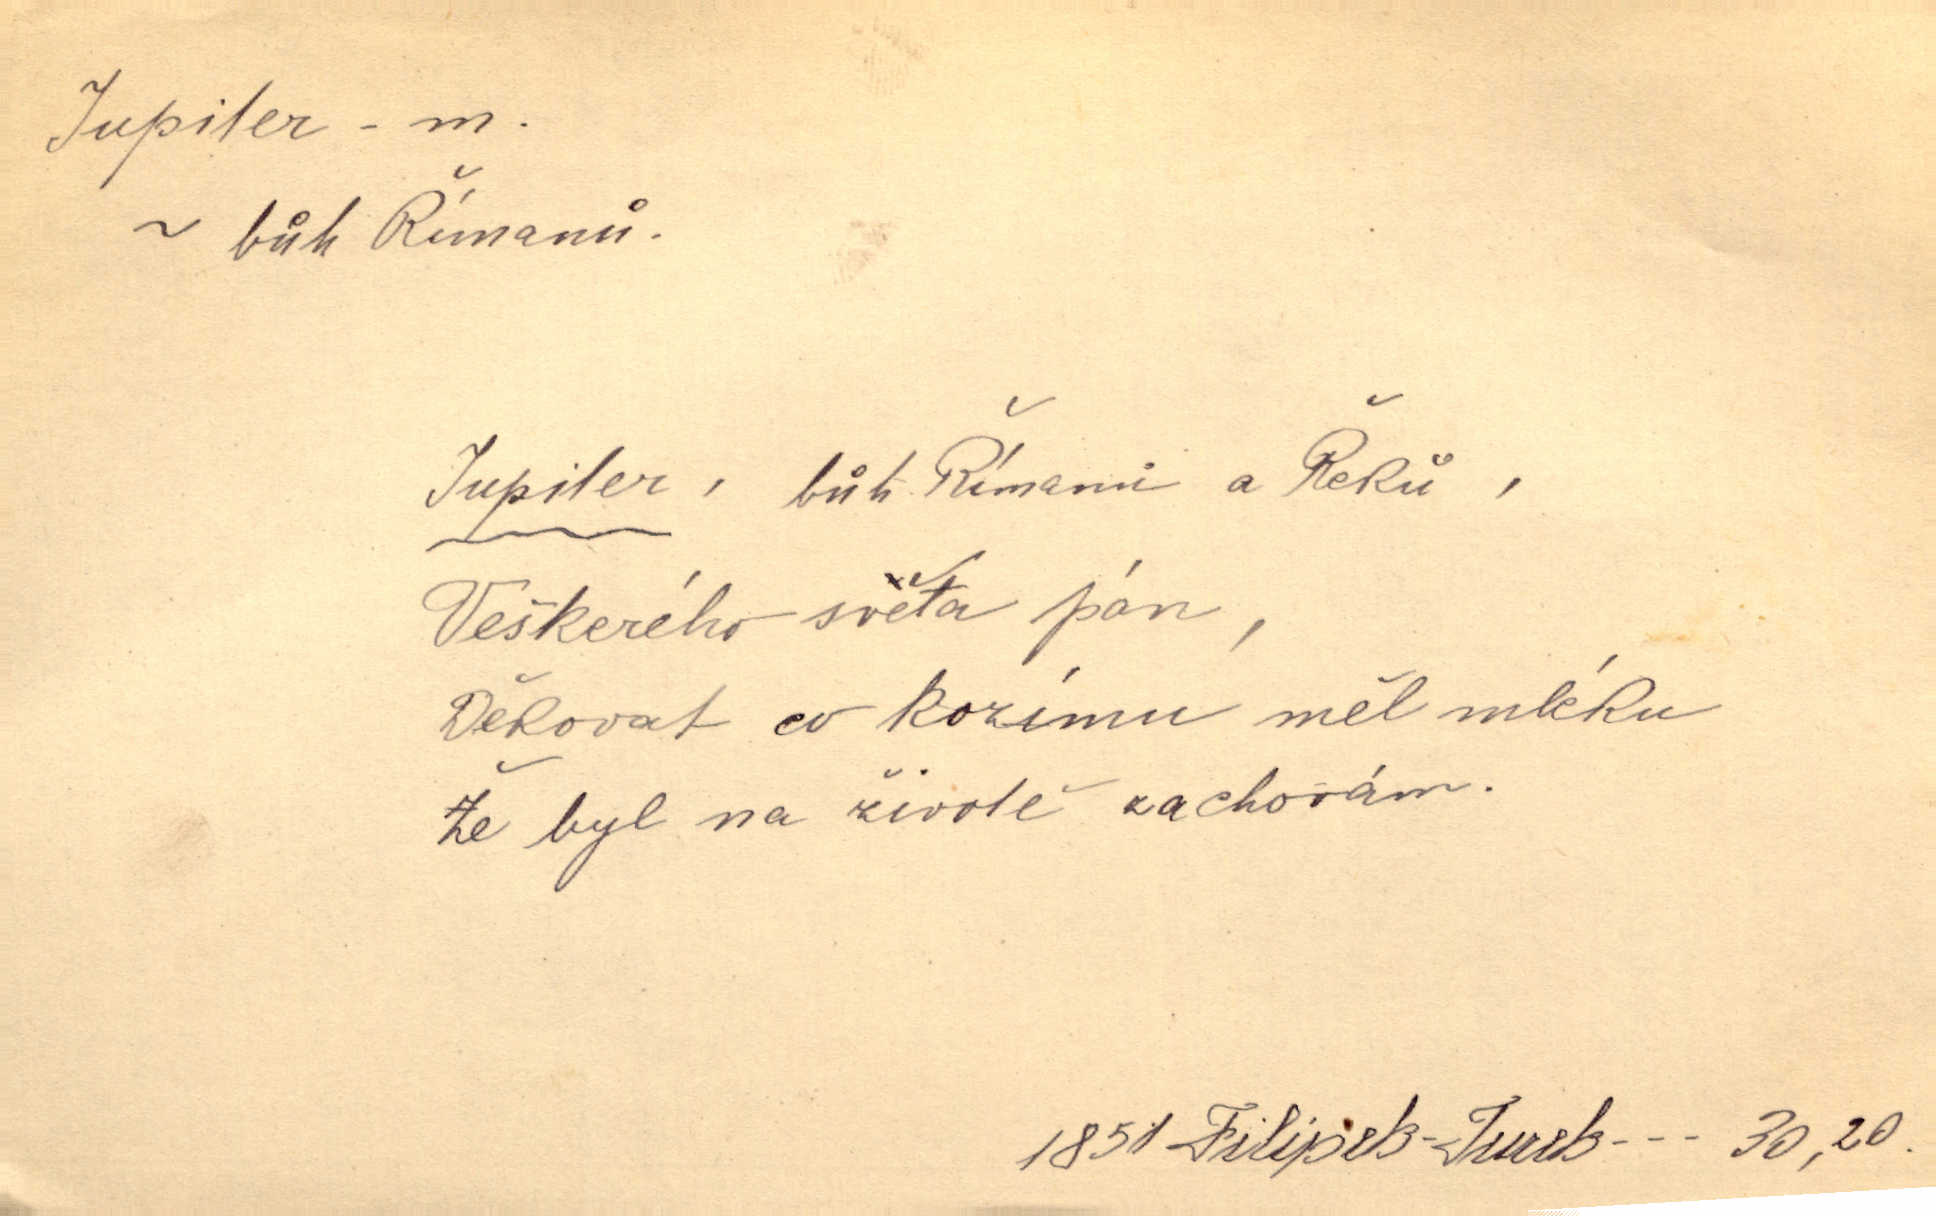 Jupiter - m.
~ bůh Římanů.
Jupiter, bůh Římanů a Řeků,
Veškerého světa pán,
Děkovat co kozímu měl mléku
Že byl na životě zachován.
1851 Filipek-Turek--- 30,20.